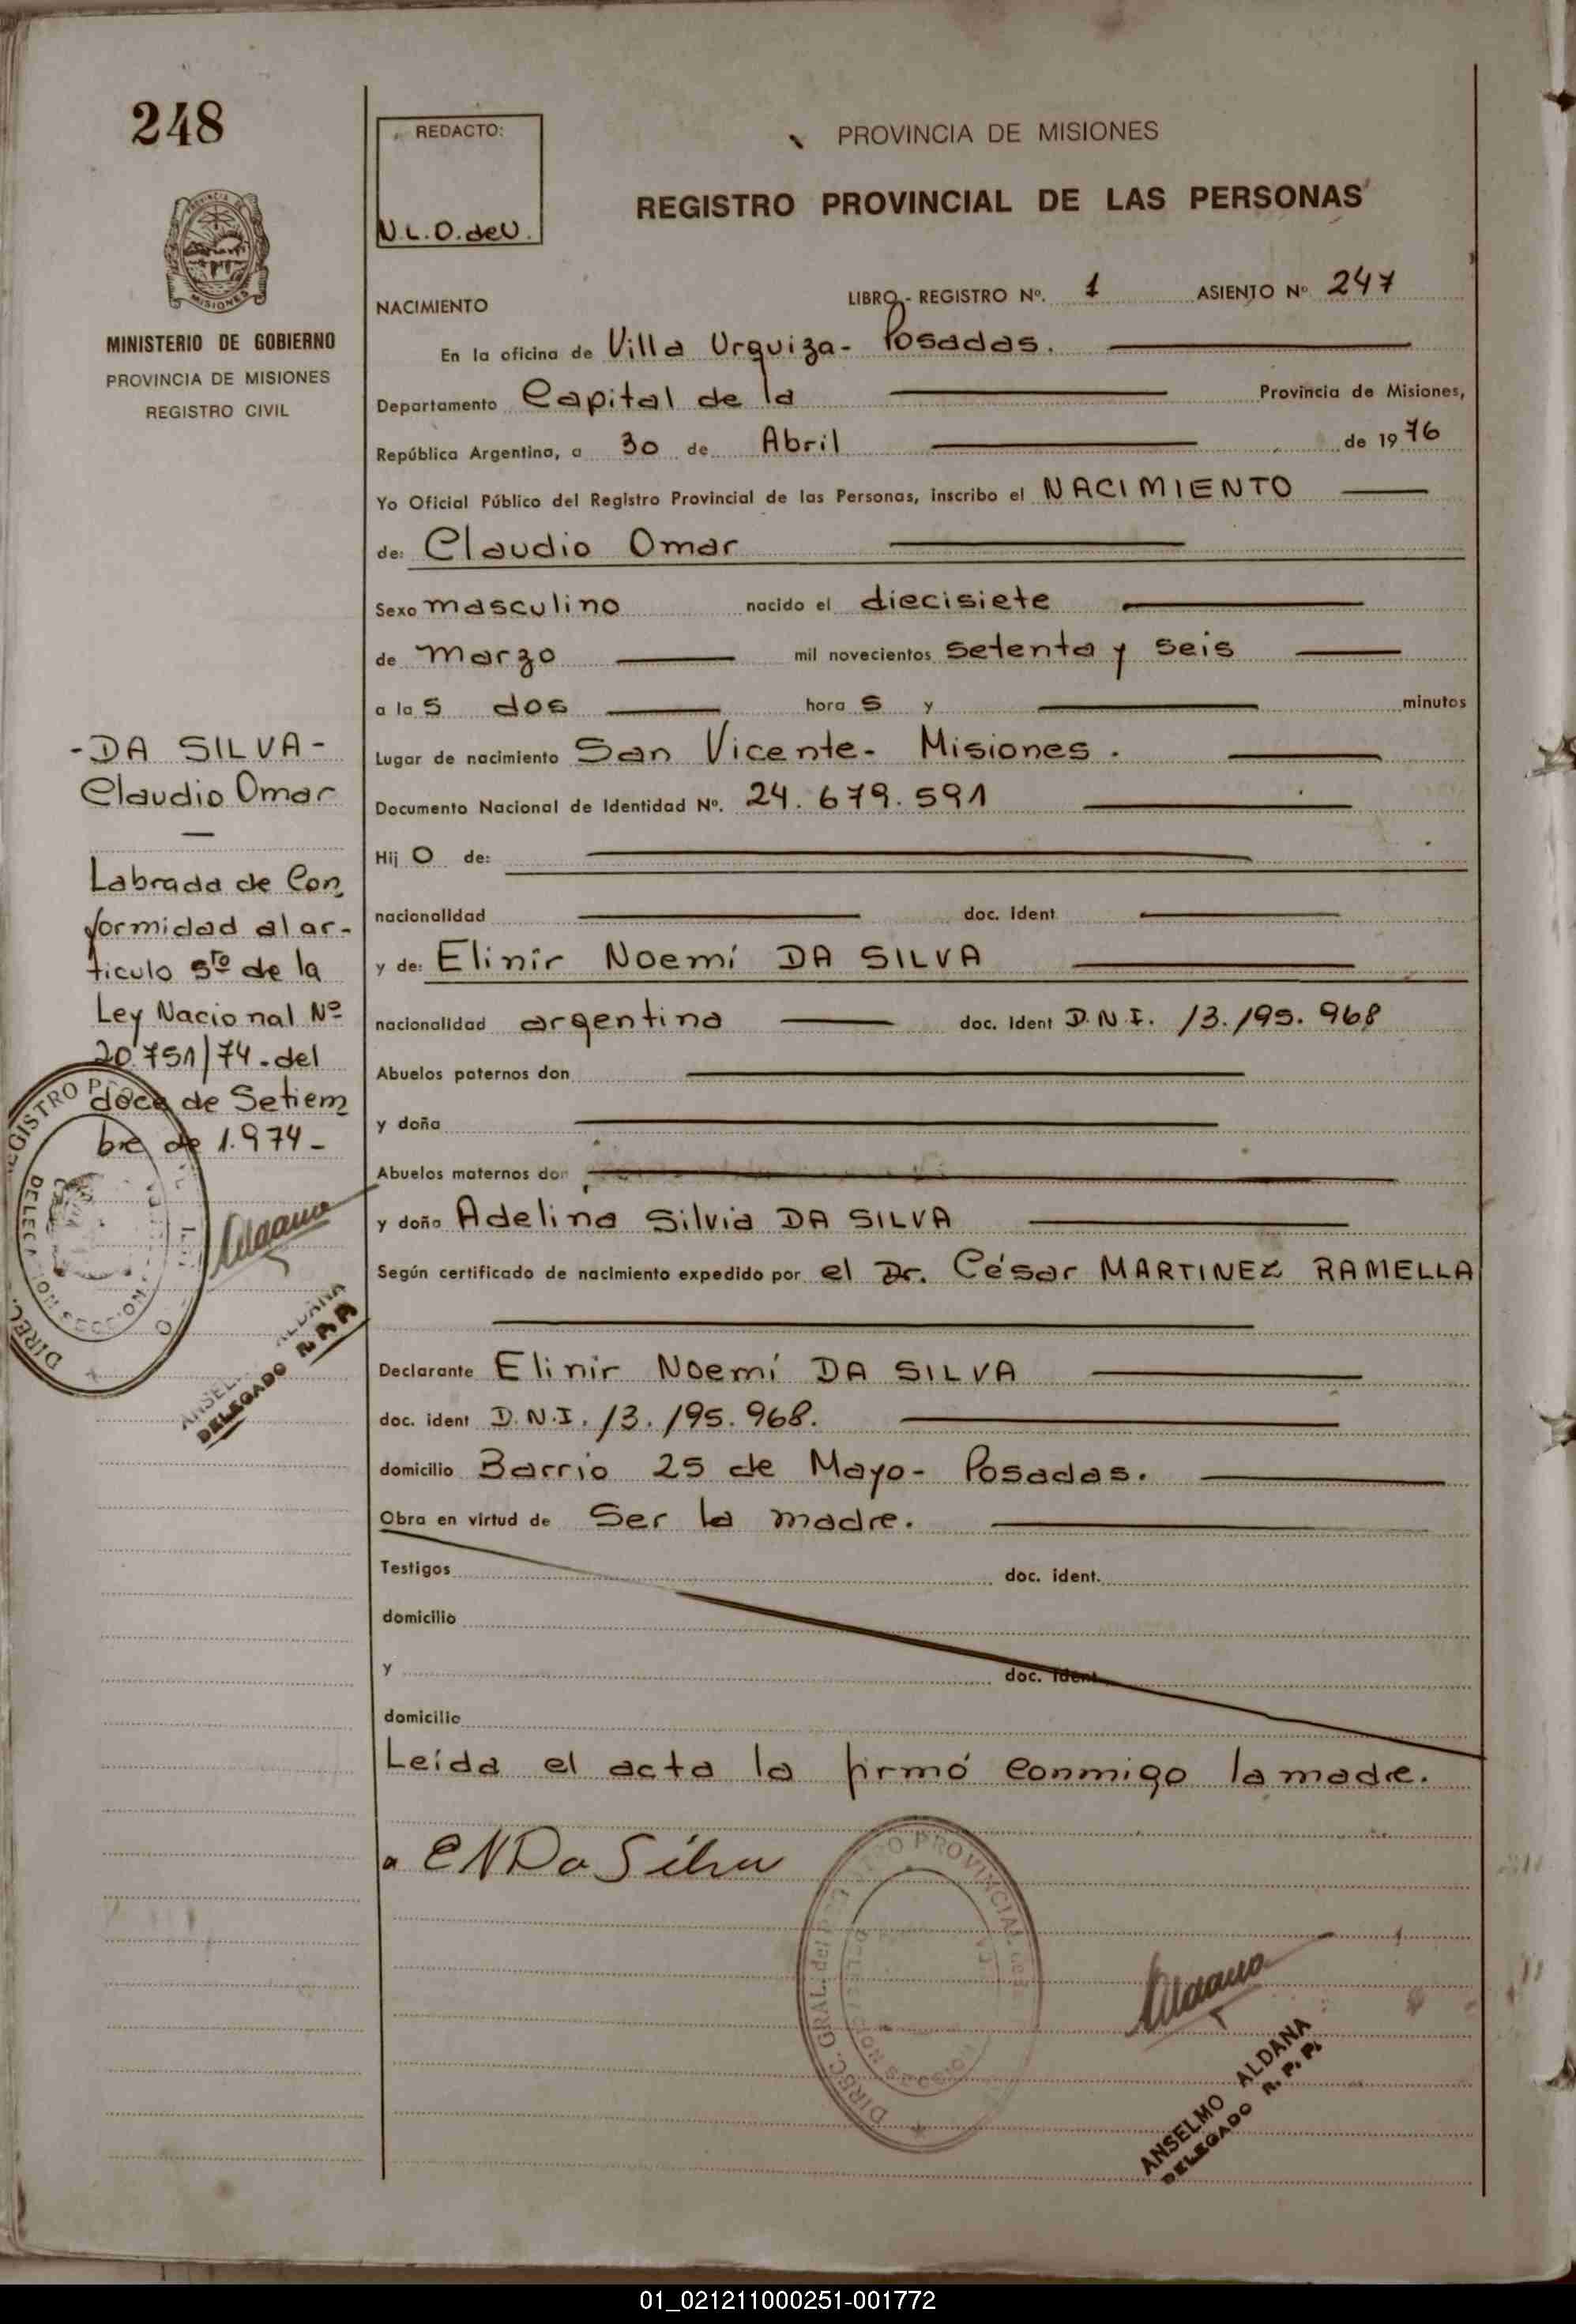 248
REDACTO:
N.L.O. deU.
PROVINCIA DE MISIONES
REGISTRO PROVINCIAL DE LAS PERSONAS
MISIONES
MINISTERIO DE GOBIERNO
PROVINCIA DE MISIONES
REGISTRO CIVIL
NACIMIENTO LIBRO - REGISTRO Nº. 1 ASIENTO Nº 247
En la oficina de Villa Urquiza - Posadas.
Departamento Capital de la Provincia de Misiones,
República Argentina, a 30 de Abril de 1976
Yo Oficial Público del Registro Provincial de las Personas, inscribo el NACIMIENTO
de: Claudio Omar
Sexo masculino nacido el diecisiete
de marzo mil novecientos setenta y seis
a las dos horas y minutos
Lugar de nacimiento San Vicente - Misiones.
Documento Nacional de Identidad Nº. 24.679.591
Hijo de:
nacionalidad doc. Ident
y de: Elinir Noemí DA SILVA
nacionalidad argentina doc. Ident D.N.I. 13.195.968
Abuelos paternos don
y doña
Abuelos maternos don
y doña Adelina Silvia DA SILVA
Según certificado de nacimiento expedido por el Dr. César MARTINEZ RAMELLA
Declarante Elinir Noemí DA SILVA
doc. ident D.N.I. 13.195.968.
domicilio Barrio 25 de Mayo - Posadas.
Obra en virtud de Ser la madre.
Testigos doc. ident.
domicilio
y doc. Ident
domicilio
Leída el acta la firmó conmigo la madre.
EN Da Silva
DIREC. GRAL. del REGISTRO PROVINCIAL
Aldana
ANSELMO ALDANA
DELEGADO R. P. P.
- DA SILVA -
Claudio Omar
Labrada de Con
formidad al ar-
tículo 5to de la
Ley Nacional Nº
20.751/74 - del
doce de Setiem
bre de 1.974 -
Aldana
ANSEL ALDANA
DELEGADO
01_021211000251-001772